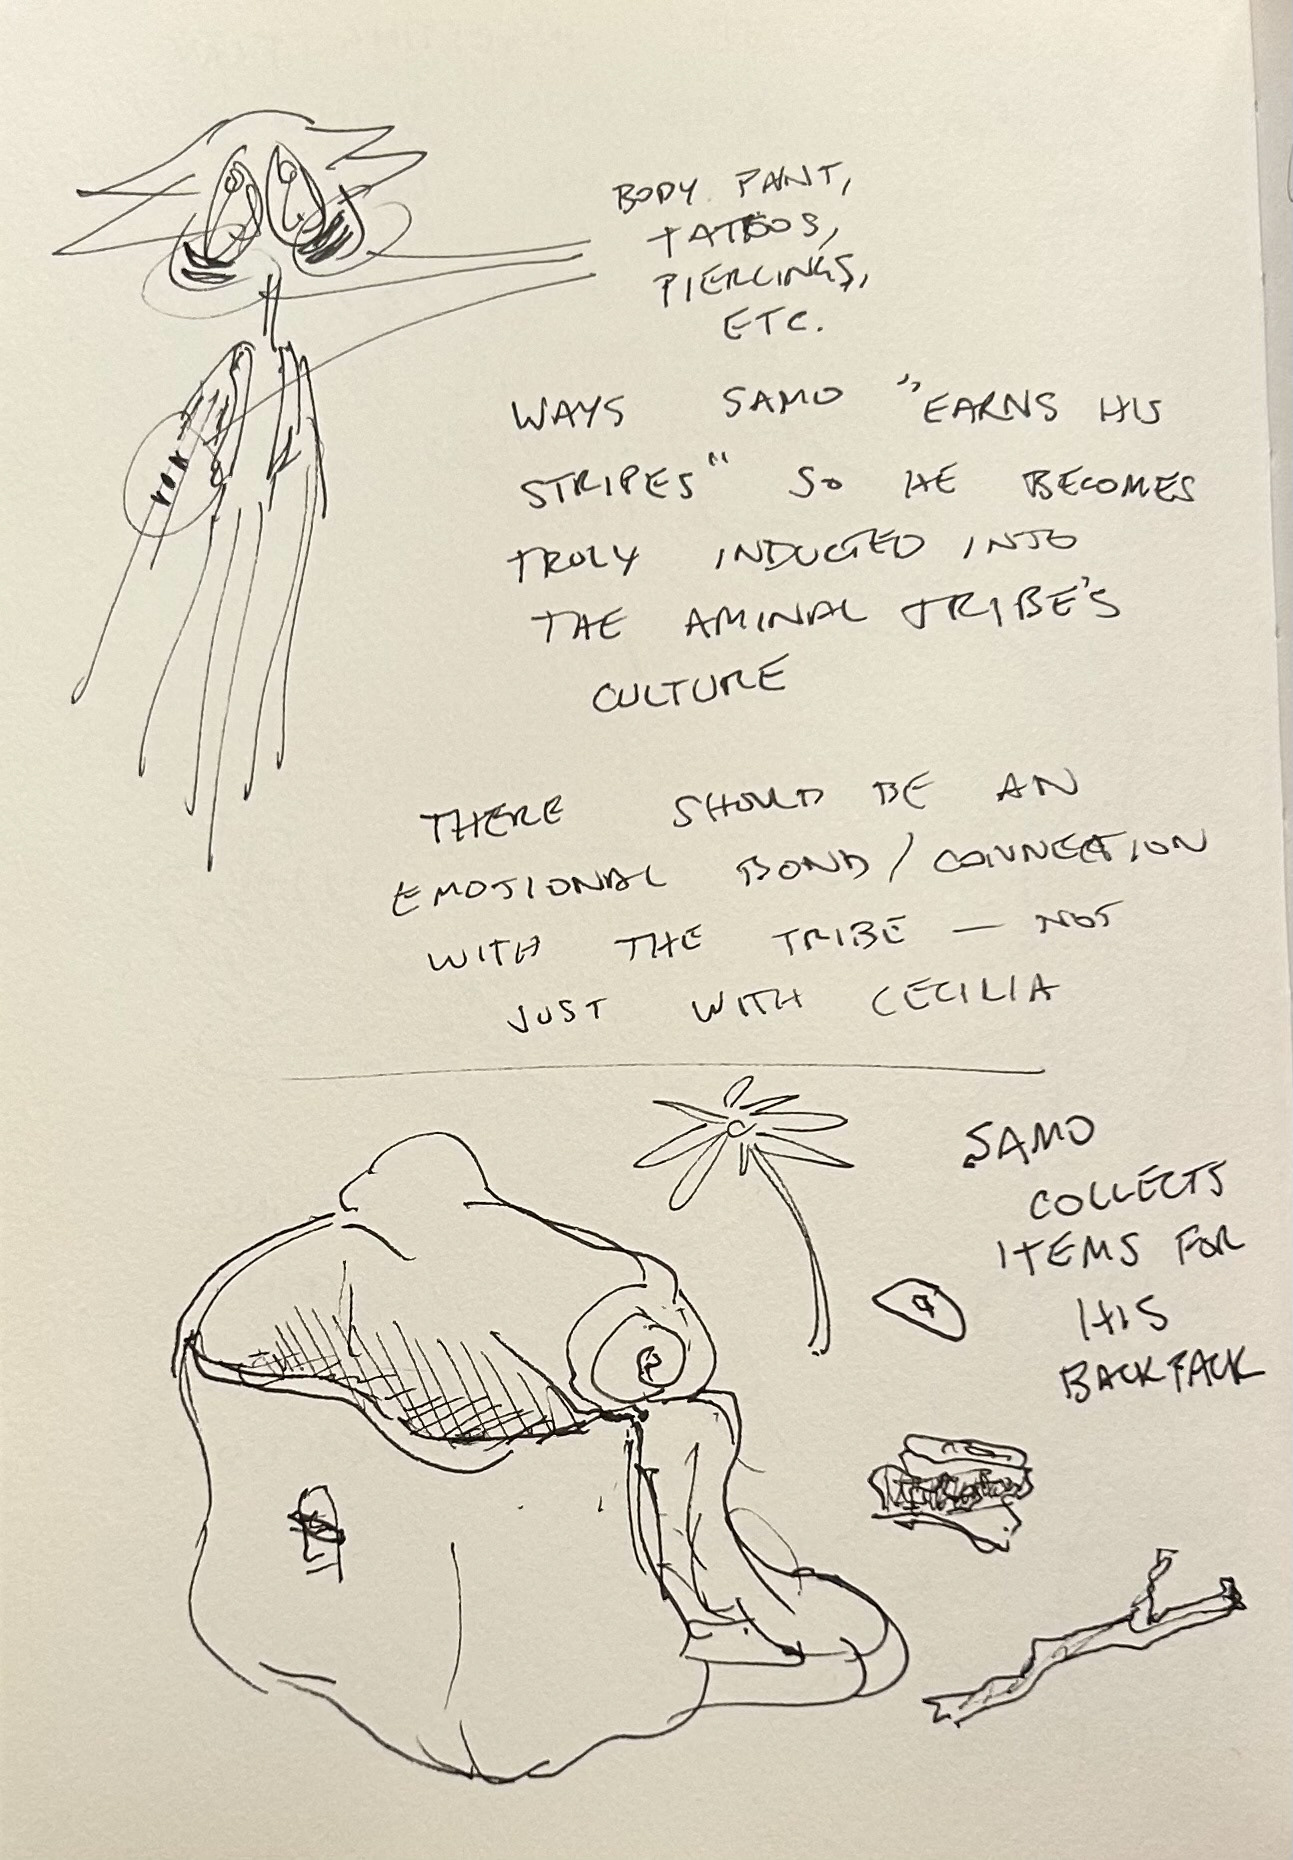 BODY PAINT,
TATTOOS,
PIERCINGS,
ETC.
WAYS SAMO "EARNS HIS
STRIPES" SO HE BECOMES
TRULY INDUCTED INTO
THE AMINAL TRIBE'S
CULTURE
THERE SHOULD BE AN
EMOTIONAL BOND/CONNECTION
WITH THE TRIBE — NOT
JUST WITH CECILIA
SAMO
COLLECTS
ITEMS FOR
HIS
BACKPACK